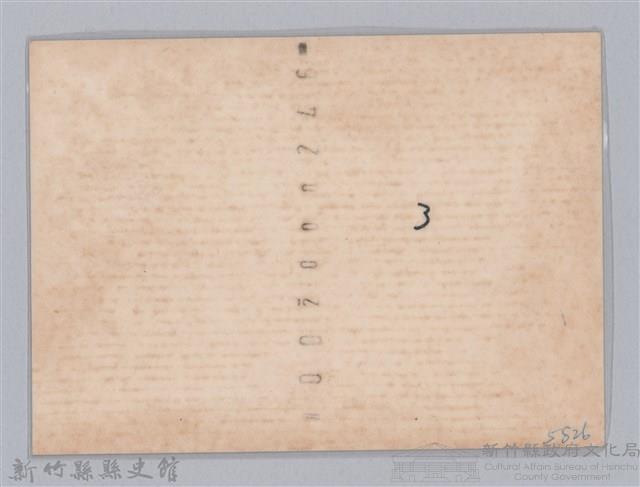 3
5826
新竹縣縣史館
新竹縣政府文化局
Cultural Affairs Bureau of Hsinchu
County Government